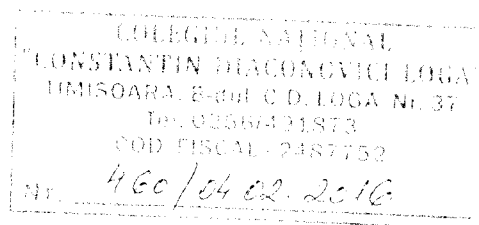 COLEGIUL NAȚIONAL
"CONSTANTIN DIACONOVICI LOGA"
TIMISOARA, B-dul C.D. LOGA Nr. 37
Tel. 0256/491873
COD FISCAL - 2487752
Nr. 460 / 04 02. 2016